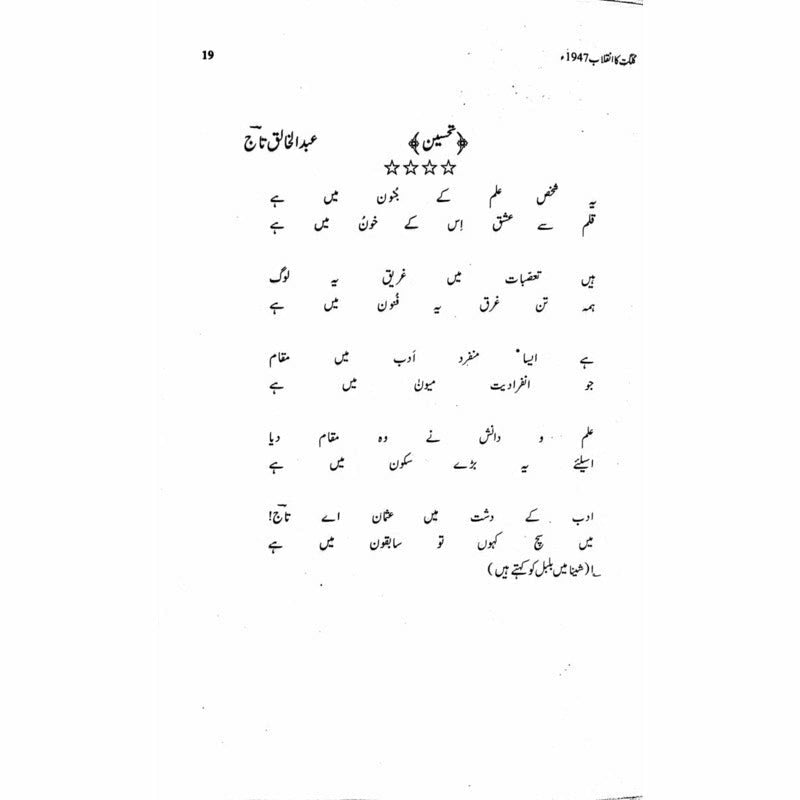 گلگت کا انقلاب 1947ء 19
﴿تحسین﴾ عبدالخالق تاجؔ
☆☆☆☆
یہ شخص علم کے جُنون میں ہے
قلم سے عشق اِس کے خونُ میں ہے
ہیں تعصّبات میں غریق یہ لوگ
ہمہ تن غرق یہ فُنون میں ہے
ہے ایسا منفرد اَدب میں مقام
جو انفرادیت میون۱ میں ہے
علم و دانش نے وہ مقام دیا
اسلیئے یہ بڑے سکون میں ہے
ادب کے دشت میں عثمان اے تاجؔ!
میں سچ کہوں تو سابقون میں ہے
۱؎ (شینا میں بلبل کو کہتے ہیں)